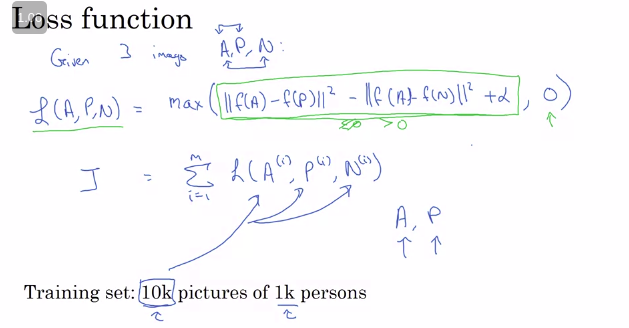 Loss function
Given 3 images A, P, N:
L(A,P,N) = max(||f(A)-f(P)||² - ||f(A)-f(N)||² + α, 0)
≤0 >0
J = Σ_{i=1}^{M} L(A^{(i)}, P^{(i)}, N^{(i)})
A, P
Training set: 10k pictures of 1k persons